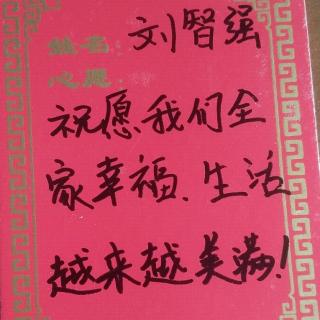 姓名: 刘智强
心愿:
祝愿我们全
家幸福、生活
越来越美满!